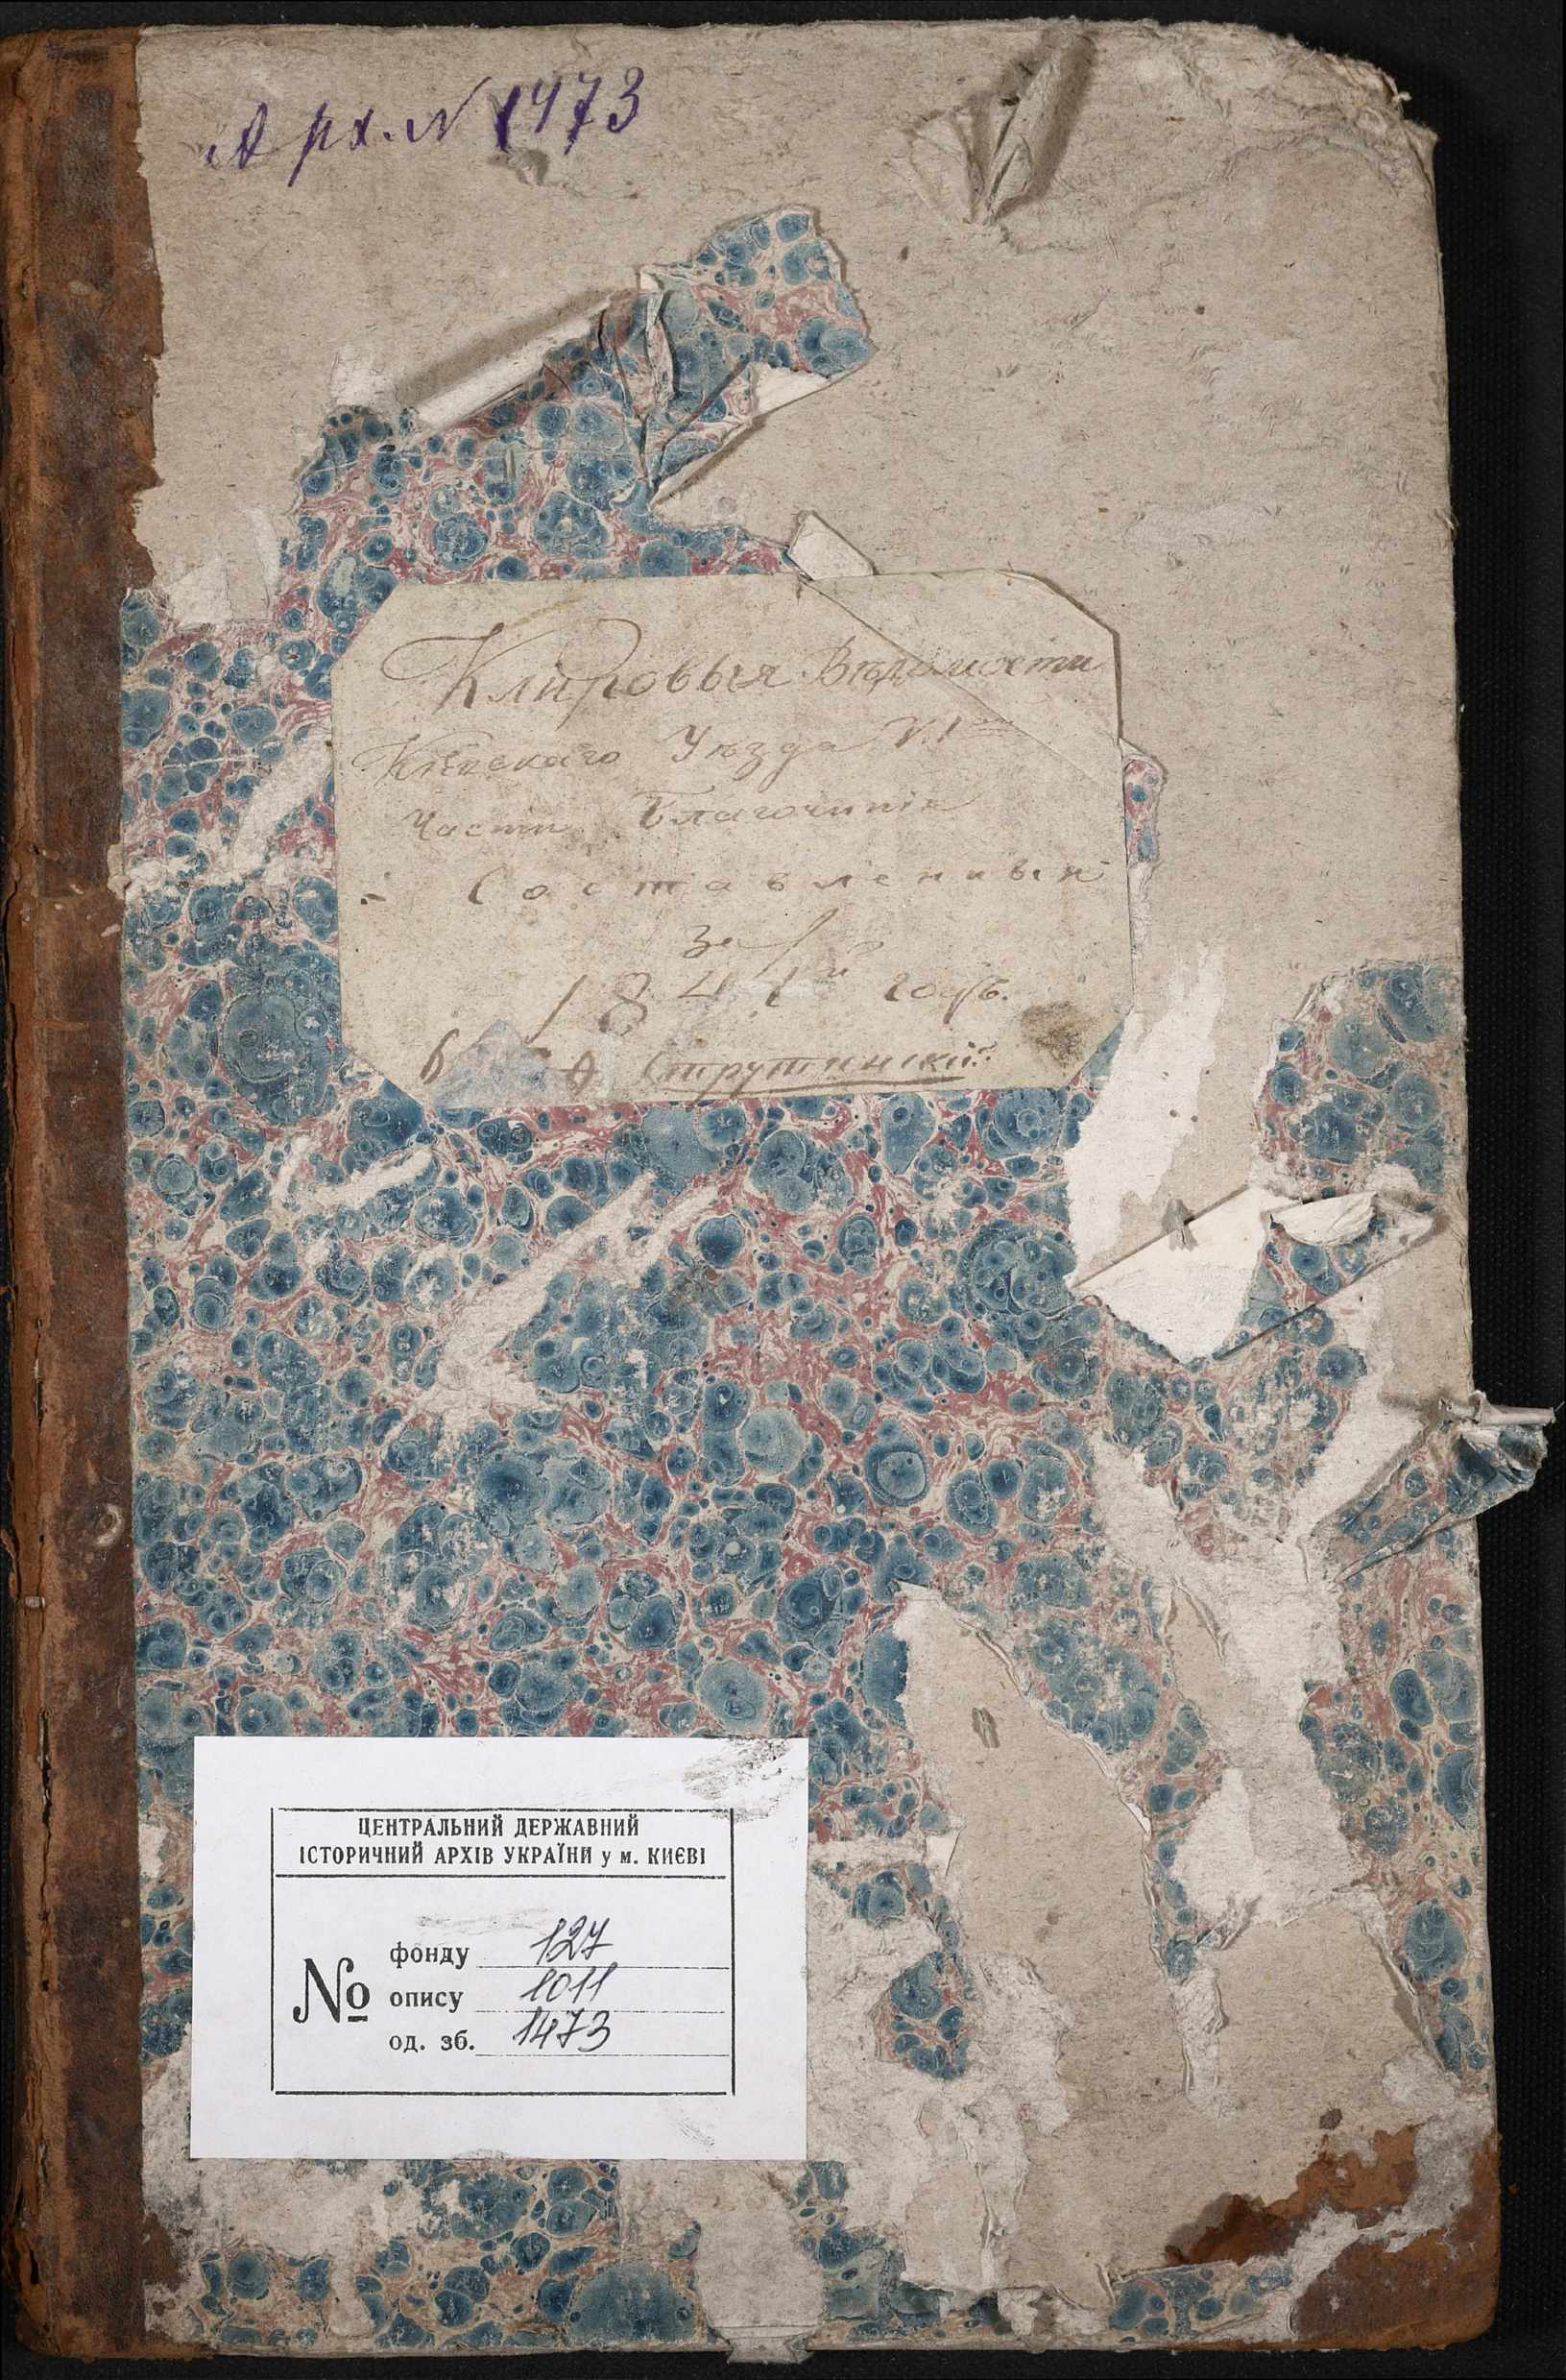 Арх. N 1473
Клировыя Вѣдомости
Кіевскаго Уѣзда
Части Благочинія
Составленныя
за
1841й годъ.
Струтинскій
ЦЕНТРАЛЬНИЙ ДЕРЖАВНИЙ
ІСТОРИЧНИЙ АРХІВ УКРАЇНИ у м. КИЄВІ
№
фонду 127
опису 1011
од. зб. 1473